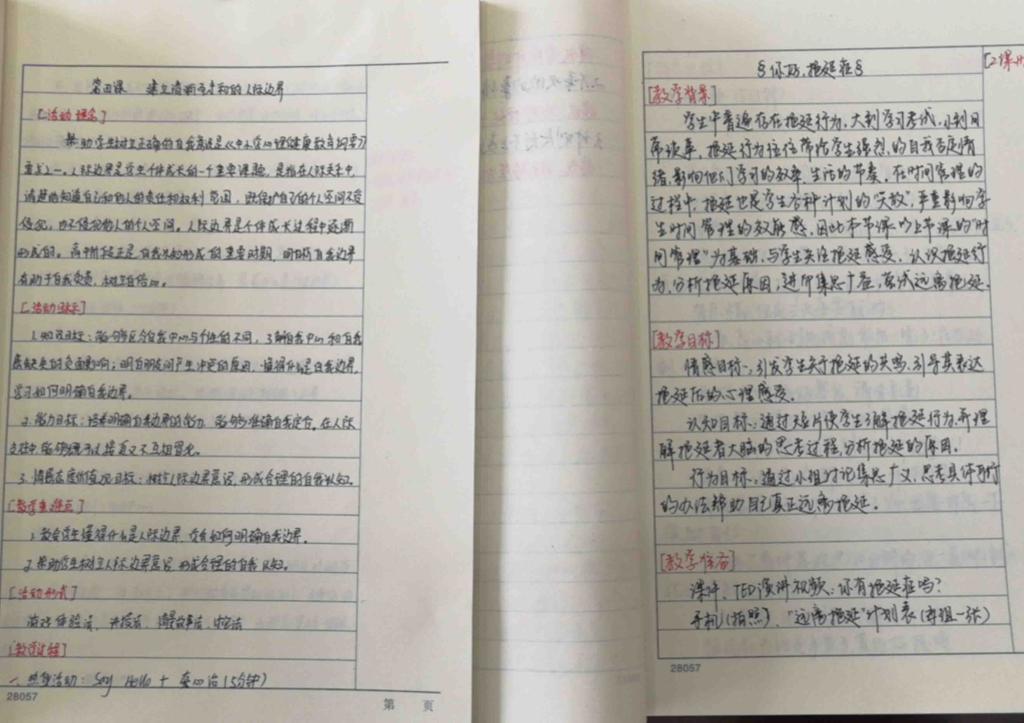 第四课 建立清晰而柔和的人际边界
[活动理念]
帮助学生树立正确的自我意识是中小学心理健康教育的重要
清楚地知道自己和他人的责任和权利范围，既保护自己的个人空间不受
侵犯，也不侵犯他人的个人空间。人际边界是个体成长过程中逐渐
形成的。高中阶段正是自我认知形成的重要时期，明确自我边界
有助于自我负责，树立自信心。
[活动目标]
学习如何明确自我边界。
2.能力目标：培养明确自我边界的能力，能够准确自我定位，在人际
3.情感态度价值观目标：树立人际边界意识，形成合理的自我认知。
[教学重难点]
1.教会学生懂得什么是人际边界，及如何明确自我边界。
2.帮助学生树立人际边界意识，形成合理的自我认知。
[活动形式]
游戏体验法、讲授法、情景故事法、讨论法
[教学过程]
一、热身活动：Say Hello + (5分钟)
28057
第 页
§你好，拖延症§
[2课时
[教学背景]
学生中普遍存在拖延行为，大到学习考试，小到日
常琐事，拖延行为往往带给学生强烈的自我否定情
绪，影响他们学习的效率、生活的节奏，在时间管理的
过程中，拖延也是学生各种计划的“天敌”，严重影响学
生时间管理的效能感，因此本节课以上节课的“时
间管理”为基础，与学生关注拖延感受，认识拖延行
为，分析拖延原因，进而集思广益，尝试远离拖延。
[教学目标]
情感目标：引发学生关于拖延的共鸣，引导其表达
拖延后的心理感受。
认知目标：通过短片使学生了解拖延行为，并理
解拖延者大脑的思考过程，分析拖延的原因。
行为目标：通过小组讨论集思广义，思考具体可行
的办法帮助自己真正远离拖延。
[教学准备]
课件、TED演讲视频：你有拖延症吗？
手机(拍照)、“远离拖延”计划表(每组一张)
28057